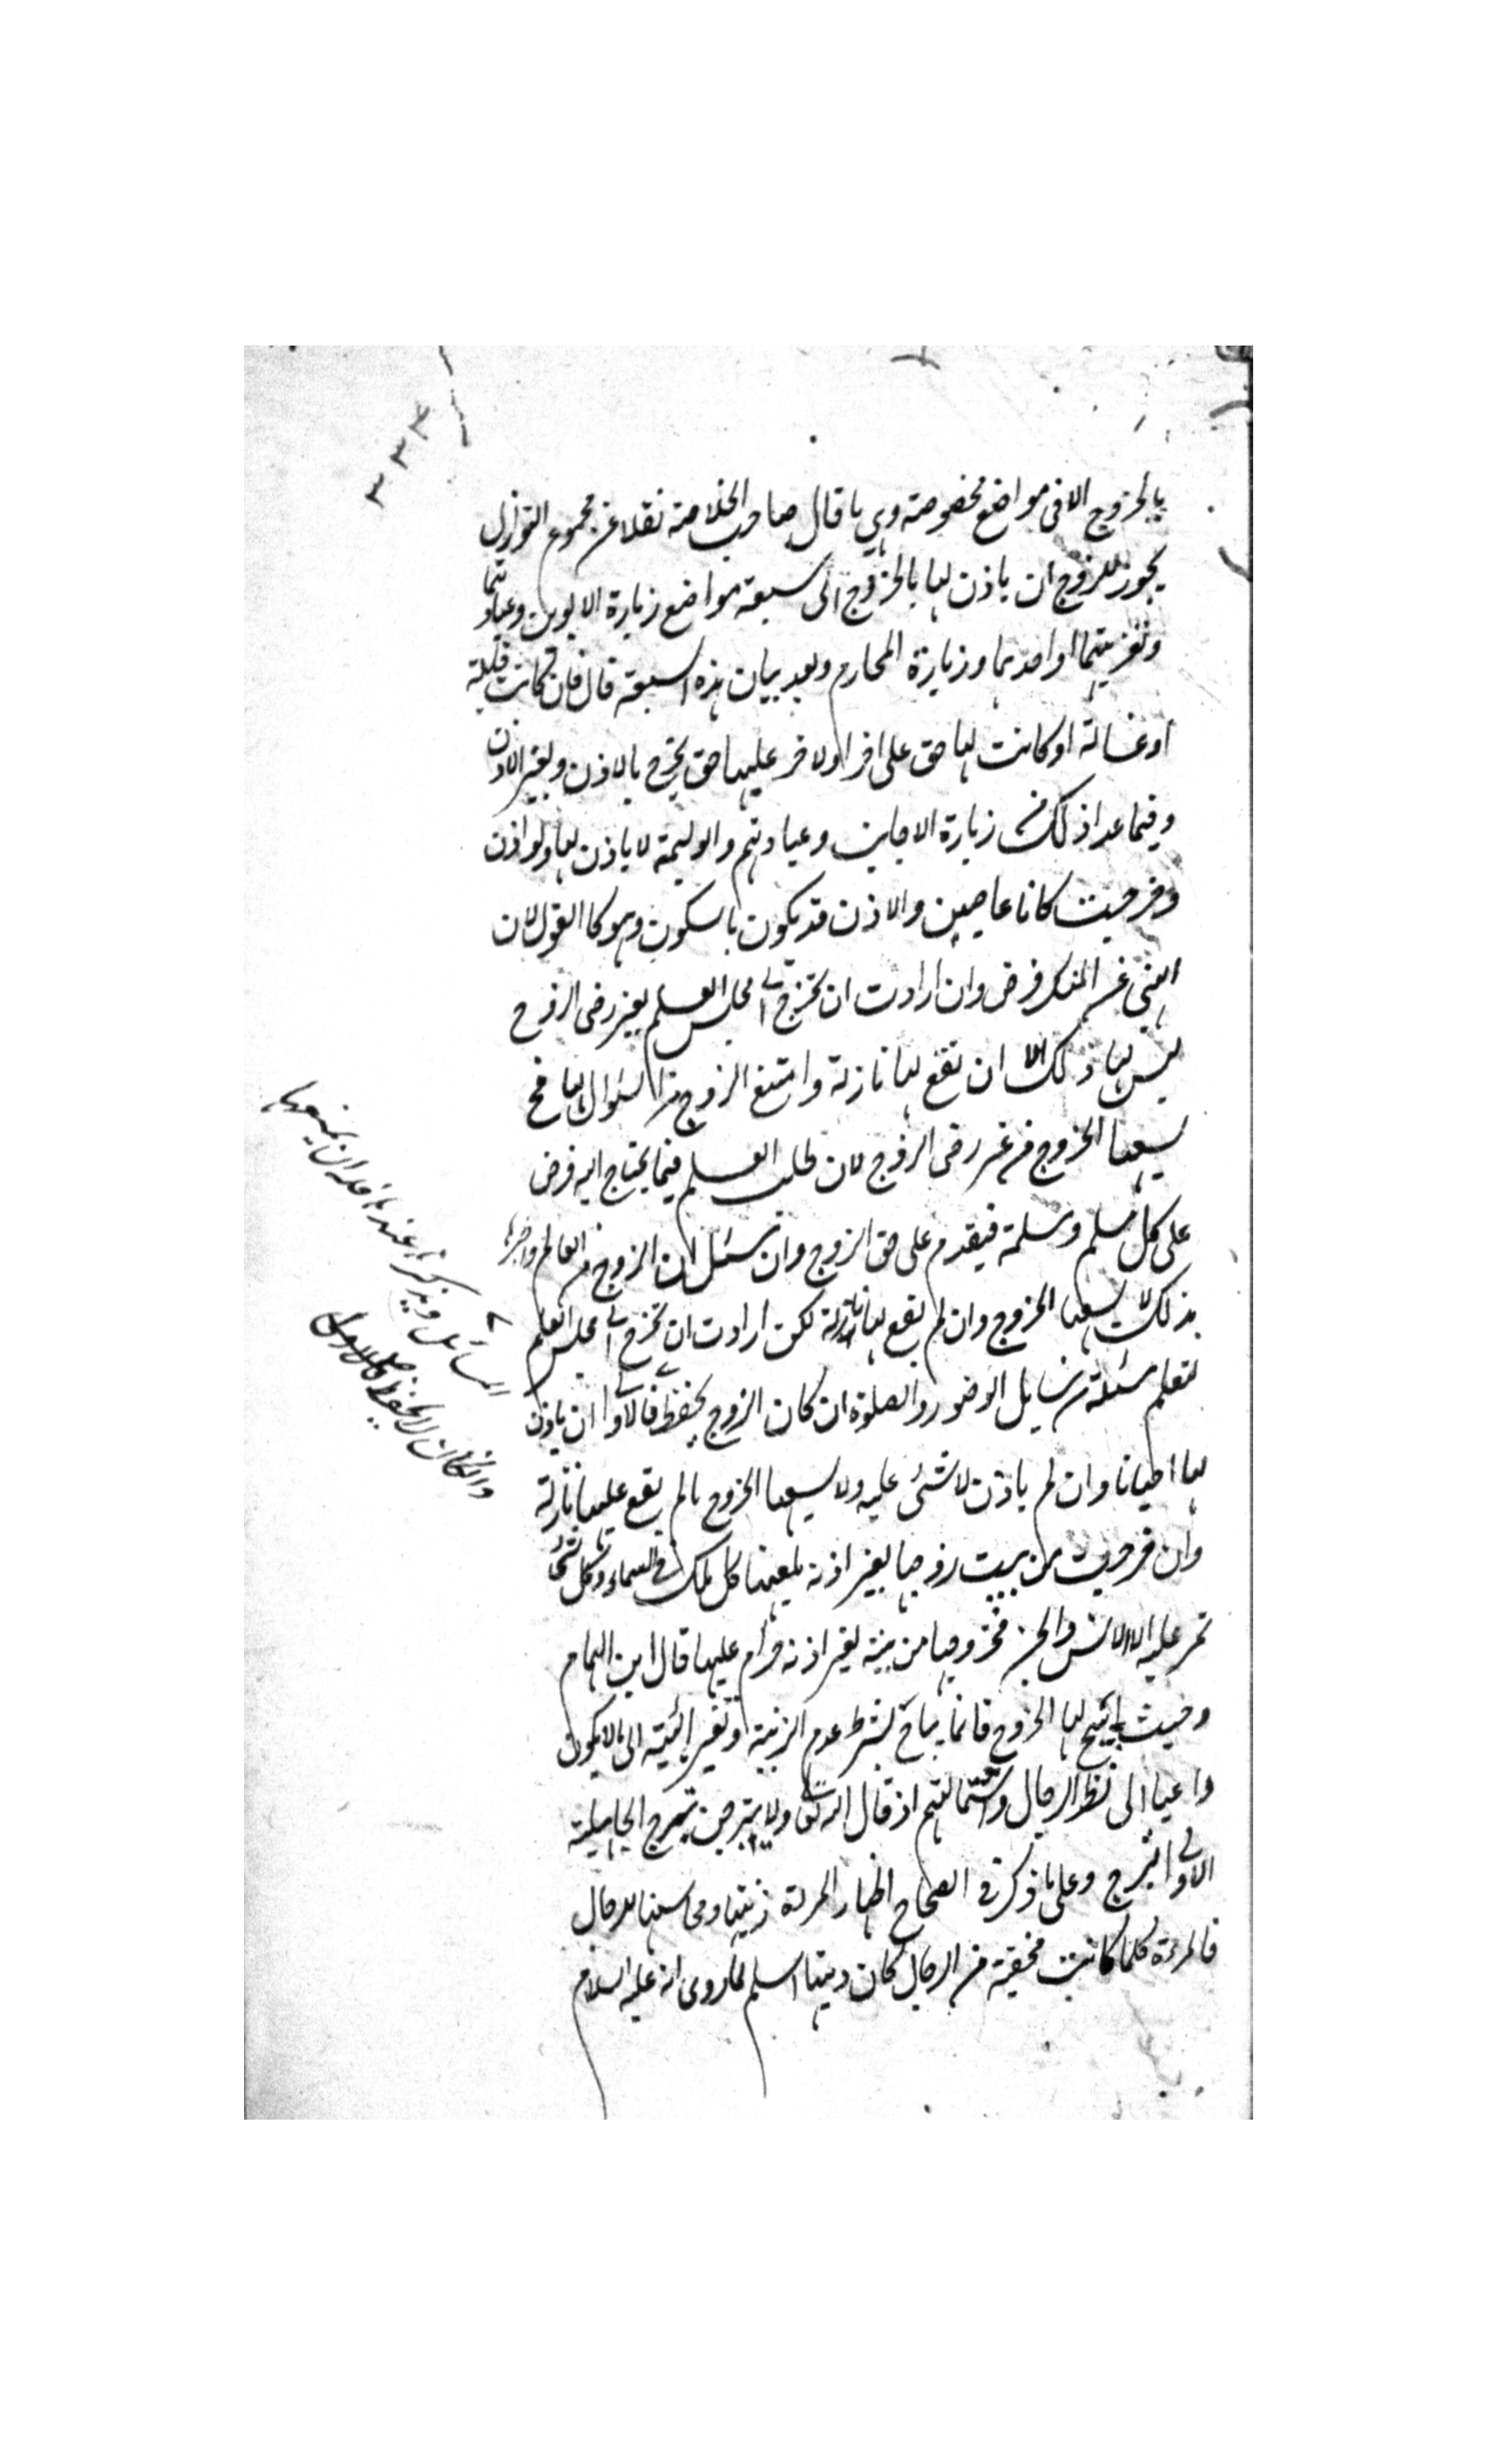 ٣٣٣
بالخروج الا فى مواضع مخصوصة وهى ما قال صاحب الخلاصة نقلا عن مجموع النوازل
يجوز للزوج ان ياذن لها بالخروج الى سبعة مواضع زيارة الابوين وعيادتهما
وتعزيتهما او احدهما وزيارة المحارم وبعد بيان هذه السبعة قال فان كانت قابلة
او غسالة او كانت لها حق على اخر او لاخر عليها حق يخرج بالاذن وبغير الاذن
وفيما عدا ذلك من زيارة الاجانب وعيادتهم والوليمة لا ياذن لها ولو اذن
وخرجت كانا عاصيين والاذن قد يكون بالسكوت وهو كالقول لان
النهى عن المنكر فرض وان ارادت ان تخرج الى مجلس العلم بغير رضى الزوج
ليس لها ذلك الا ان تقع لها نازلة وامتنع الزوج من السؤال لها فح
يسعها الخروج من غير رضى الزوج لان طلب العلم فيما يحتاج اليه فرض
على كل مسلم ومسلمة فيقدم على حق الزوج وان سئل الزوج من العالم واخبرها
بذلك لا يسعها الخروج وان لم يقع لها نازلة لكن ارادت ان تخرج الى مجلس العلم
لتعلم مسئلة من مسايل الوضوء والصلوة ان كان الزوج يحفظ فالاولى ان ياذن
لها احيانا وان لم ياذن لا شئ عليه ولا يسعها الخروج ما لم يقع عليها نازلة
وان خرجت من بيت زوجها بغير اذنه يلعنها كل ملك فى السماء وكل شئ
تمر عليه الا الانس والجن فخروجها من بيته بغير اذنه حرام عليها قال ابن الهمام
وحيث ابيح لها الخروج فانما يباح بشرط عدم الزينة وتغير الهيئة الى ما لا يكون
داعيا الى نظر الرجال واستمالتهم اذ قال الله تعالى ولا تبرجن تبرج الجاهلية
الاولى التبرج وعلى ما ذكر فى الصحاح اظهار المرءة زينتها ومحاسنها للرجال
فالمرءة كلما كانت مخفية من الرجال كان دينها اسلم لما روى انه عليه السلام
المسائل ويذكرها عندها فله ان يمنعها
وان كان لا يحفظ فالاولى